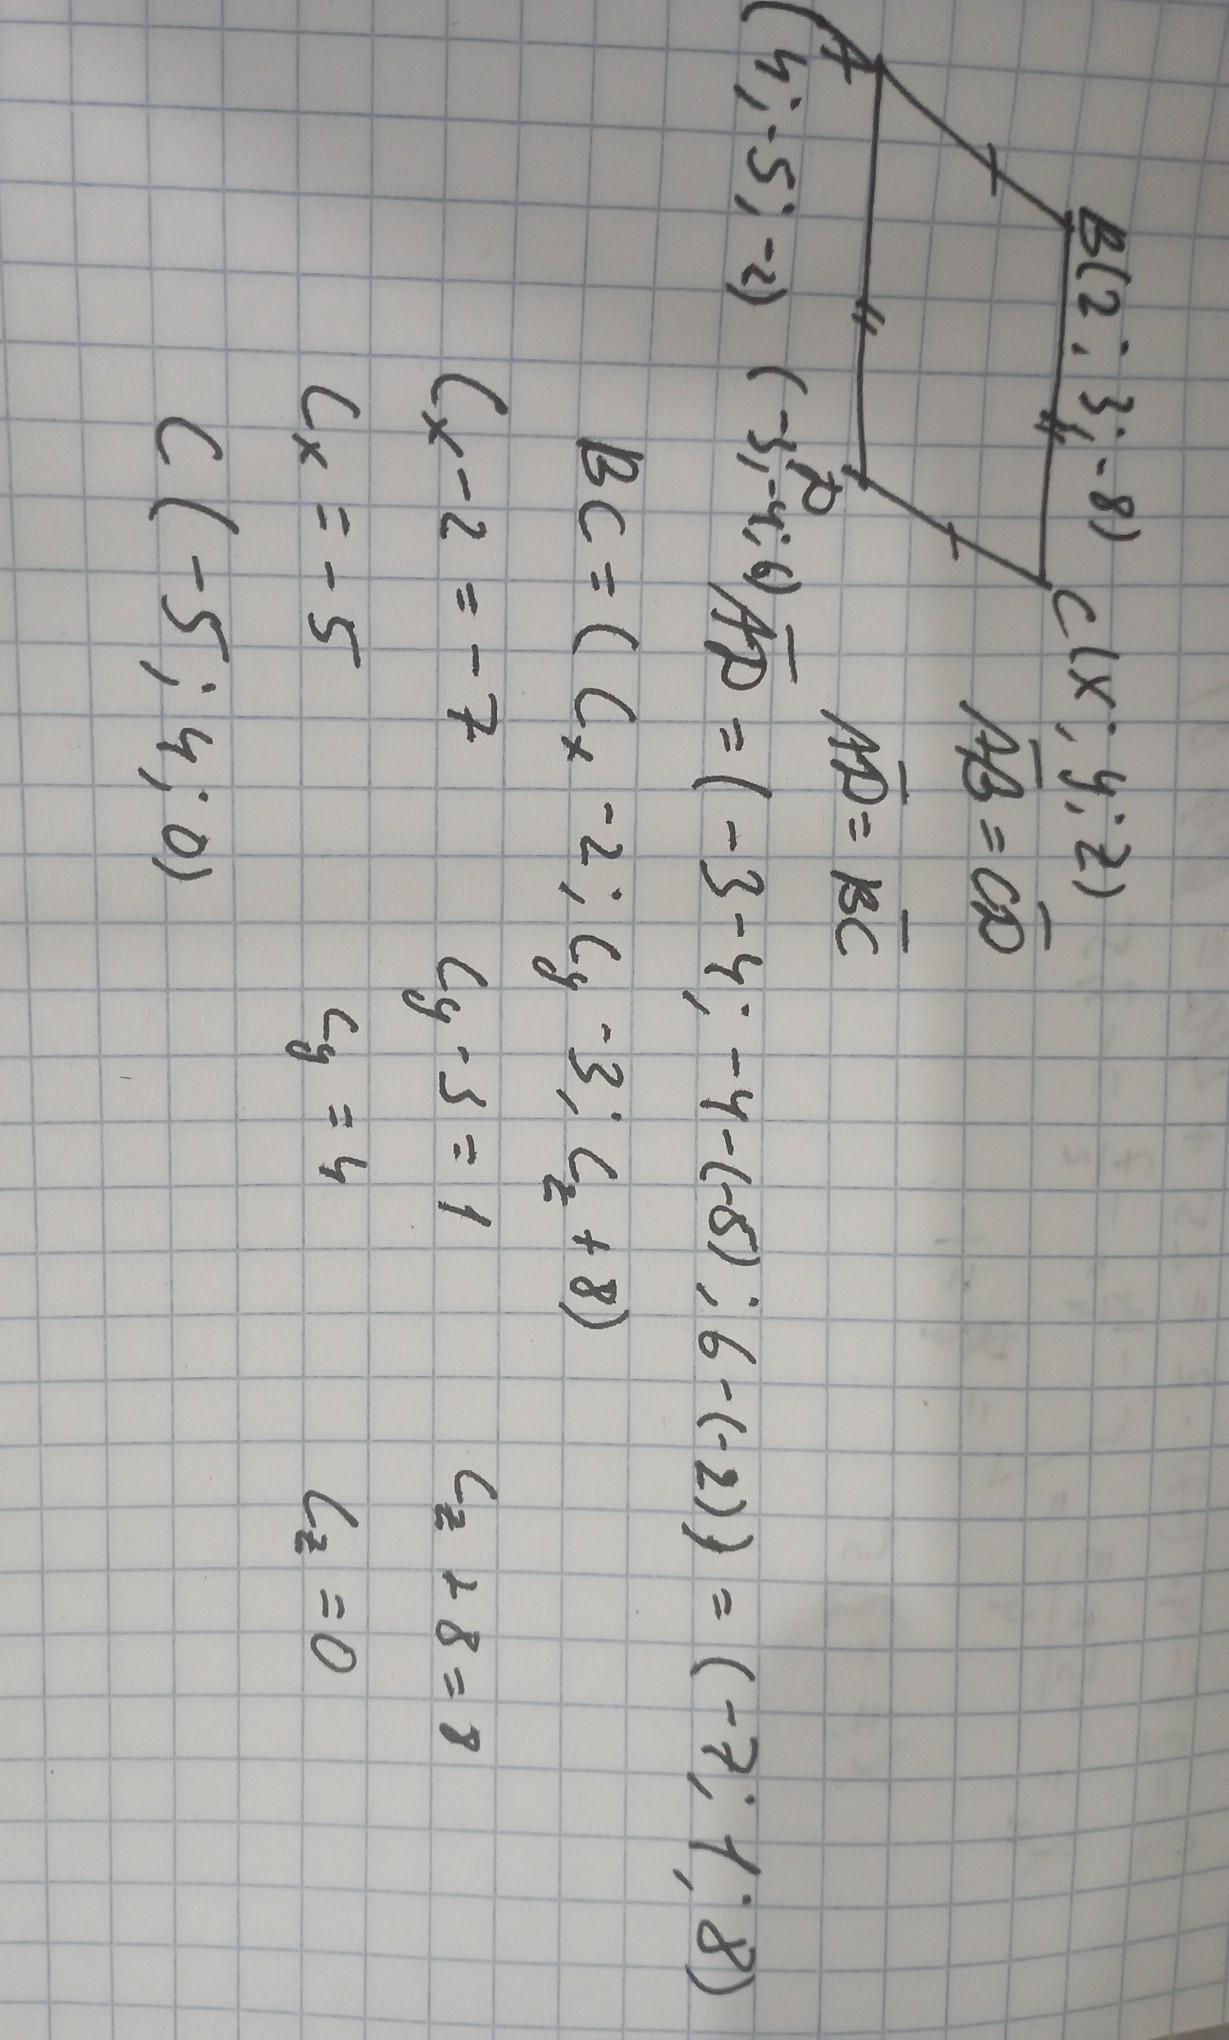 B(2; 3; -8) C(x; y; z)
A D
(4; -5; -2) (-3; -4; 6)
AB = CD
AD = BC
AD = (-3-4; -4-(-5); 6-(-2)) = (-7; 1; 8)
BC = (Cx -2; Cy -3; Cz +8)
Cx -2 = -7 Cy -3 = 1 Cz +8 = 8
Cx = -5 Cy = 4 Cz = 0
C (-5; 4; 0)